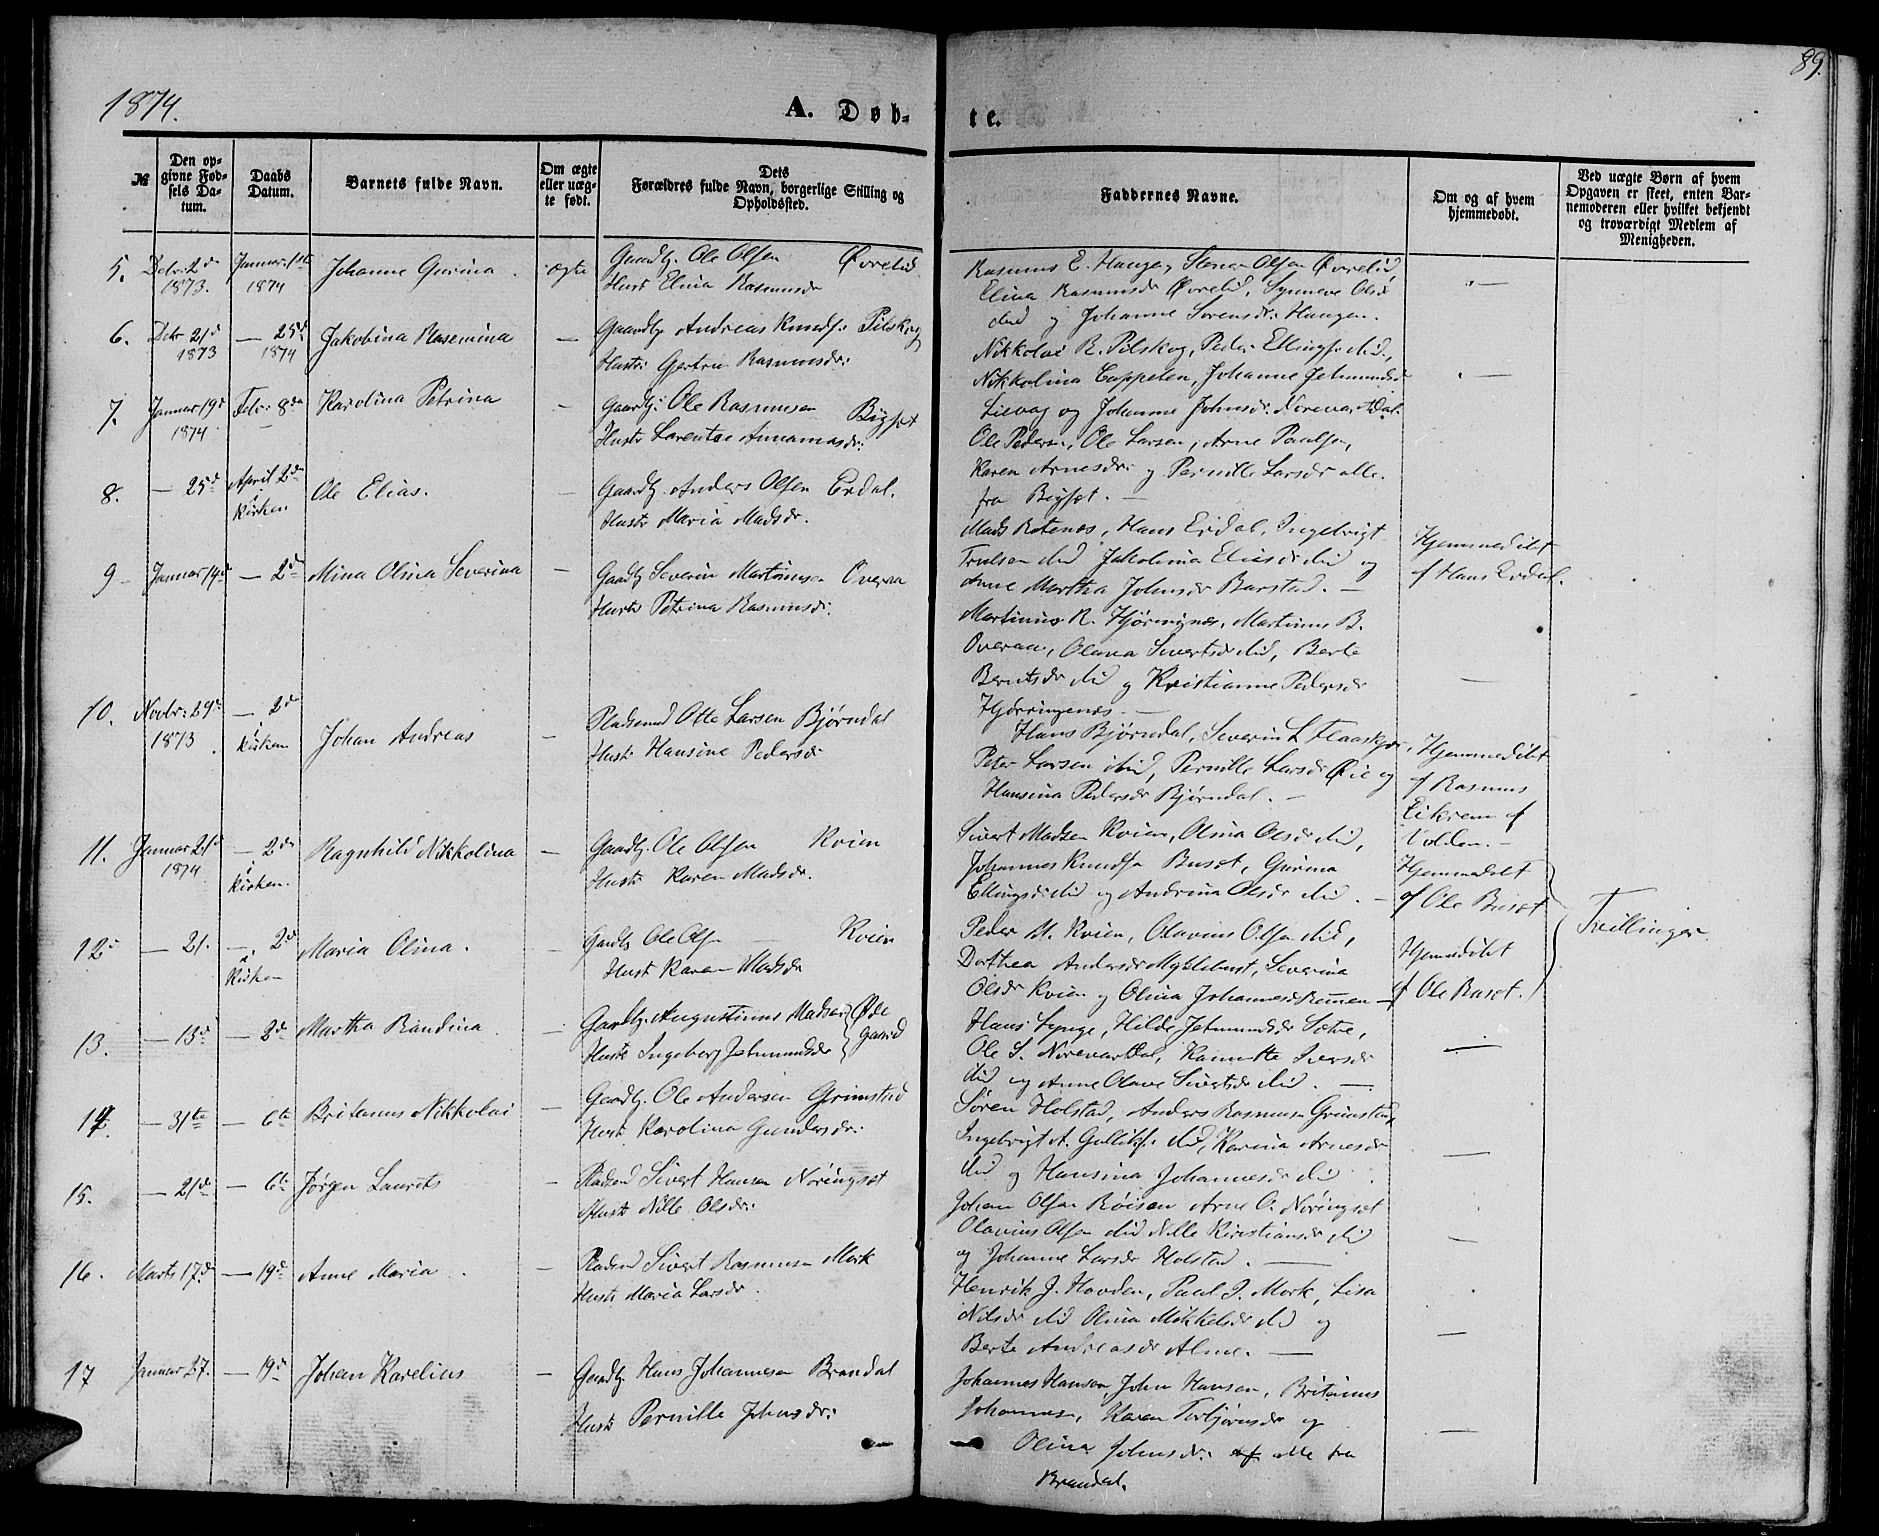 89.
1874.
A. Døb-
te.
№
Den op-
givne Fød-
sels Da-
tum.
Daabs
Datum.
Barnets fulde Navn.
Om ægte
eller uæg-
te født.
Dets
Forældres fulde Navn, borgerlige Stilling og
Opholdssted.
Faddernes Navne.
Om og af hvem
hjemmedøbt.
Ved uægte Børn af hvem
Opgaven er skeet, enten Bar-
nemoderen eller hvilket bekjendt
og troværdigt Medlem af
Menigheden.
5. Decbr. 2d 1873. Januar 1ste 1874 Johanne Gurina ægte Gaardbr. Ole Olsen Øvrelid
Hustr Elina Rasmusdr
Rasmus E. Haugen, Steen Olsen Øvrelid,
Elina Rasmusdr Øvrelid, Synneve Olsdr
ibid og Johanne Sorensdr: Haugen.
6. Decbr 21d 1873 — 25d 1874 Jakobina Rasmina — Gaardbr. Andreas Knudsen Pilskog
Hustr: Gjertru Rasmusdr:
Nikkolai R. Pilskog, Peder Ellingsen ibid,
Nikkolina Cappelen, Johanne Jetmundsdr
Lisvag og Johanne Johnsdr. Norevartdal.
7. Januar 19d 1874 Febr: 8de Karolina Petrina — Gaardbr: Ole Rasmusen Bigset
Hustr Larentse Annamasdr:
Ole Pedersen, Ole Larsen, Arne Paulsen,
Karen Arnesdr: og Pernille Larsdr alle
fra Bigset. —
8. — 25d April 2den i Kirken Ole Elias. — Gaardbr. Anders Olsen Eidal.
Hustr Maria Madsdr.
Mads Rotenæs, Hans Eidal, Ingebrigt
Trulsen ibid Jakobina Eliasdr ibid og
Anne Martha Johnsdr Barstad. —
Hjemmedøbt
af Hans Eidal.
9 — Januar 19d — 2den Mina Olina Severina — Gaardbr Severin Martinusen Overaa
Hustr Petrina Rasmusdr:
Martinus R. Hjøringnæs, Martinus B.
Overaa, Olava Sivertsdr ibid, Berte
Berntsdr ibid og Kristianne Pedersdr
Hjørringenæs. —
10. Novbr: 29d 1873. — 2den i Kirken Johan Andreas — Pladsmd Otte Larsen Bjørndal
Hustr Hansine Pedersdr
Hans Bjørndal, Severin L Flaaskjær,
Peter Larsen ibid, Pernille Larsdr Øie og
Hansina Pedersdr Bjørndal. —
Hjemmedøbt
af Rasmus
Eikrem af
Volden. —
11. Januar 21d 1874 — 2den i Kirken. Ragnhild Nikkolina — Gaardbr. Ole Olsen Kvien
Hustr Karen Madsdr.
Sivert Madsen Kvien, Olina Olsdr ibid,
Johannes Knudsen Buset, Gurina
Ellingsdr ibid og Andrina Olsdr ibid. —
Hjemmedøbt
af Ole Buset
Tvillinger.
12. — 21. — 2d i Kirken Maria Olina. — Gaardbr Ole Olsen — Kvien
Hustr Karen Madsdr
Peder M. Kvien, Olavius Olsen ibid,
Dorthea Andersdr Myklebust, Severina
Olsdr Kvien og Olina Johannesdr Remmen —
Hjemmedøbt
af Ole Buset.
13. — 15d — 2den Martha Randina — Gaardbr. Augustinus Madsen Øde
gaard
Hustr Ingeborg Jetmundsdr
Hans Synge, Hilde Jetmundsdr Sætre,
Ole S. Norevartdal, Ivarsdr
ibid og Anne Olave Sivertsdr ibid. —
14. — 31te — 6te Britanus Nikkolai — Gaardbr. Ole Andersen Grimstad
Hustr Karolina Gundersdr:
Søren Holstad, Anders Rasmusen Grimstad,
Ingebrigt A. Gulliks. ibid, Karina Arnesdr
ibid og Hansina Johannesdr ibid
15. — 21de — 6te Jørgen Laurets — Pladsmd Sivert Hansen Nøringset
Hustr Nille Olsdr:
Johan Olsen Røisen Arne O. Nøringset
Olavius Olsen ibid Nille Kristiansdr ibid
og Johanne Larsdr Holstad. —
16. Marts 17d. — 19de Anne Maria — Pladsmd Sivert Rasmusen Mork
Hustr Maria Larsdr.
Henrik J. Hovden, Paul I. Mork, Lisa
Nilsdr ibid Olina Mikkelsdr ibid og
Berte Andreasdr Alme. —
17 Januar 27. — 19de Johan Karelius — Gaardbr. Hans Johannesen Brandal
Hustr Pernille Johnsdr:
Johannes Hansen, John Hansen, Britanus
Johannesen, Karen Torbjørnsdr og
Olina Johnsdr. alle fra
Brandal.